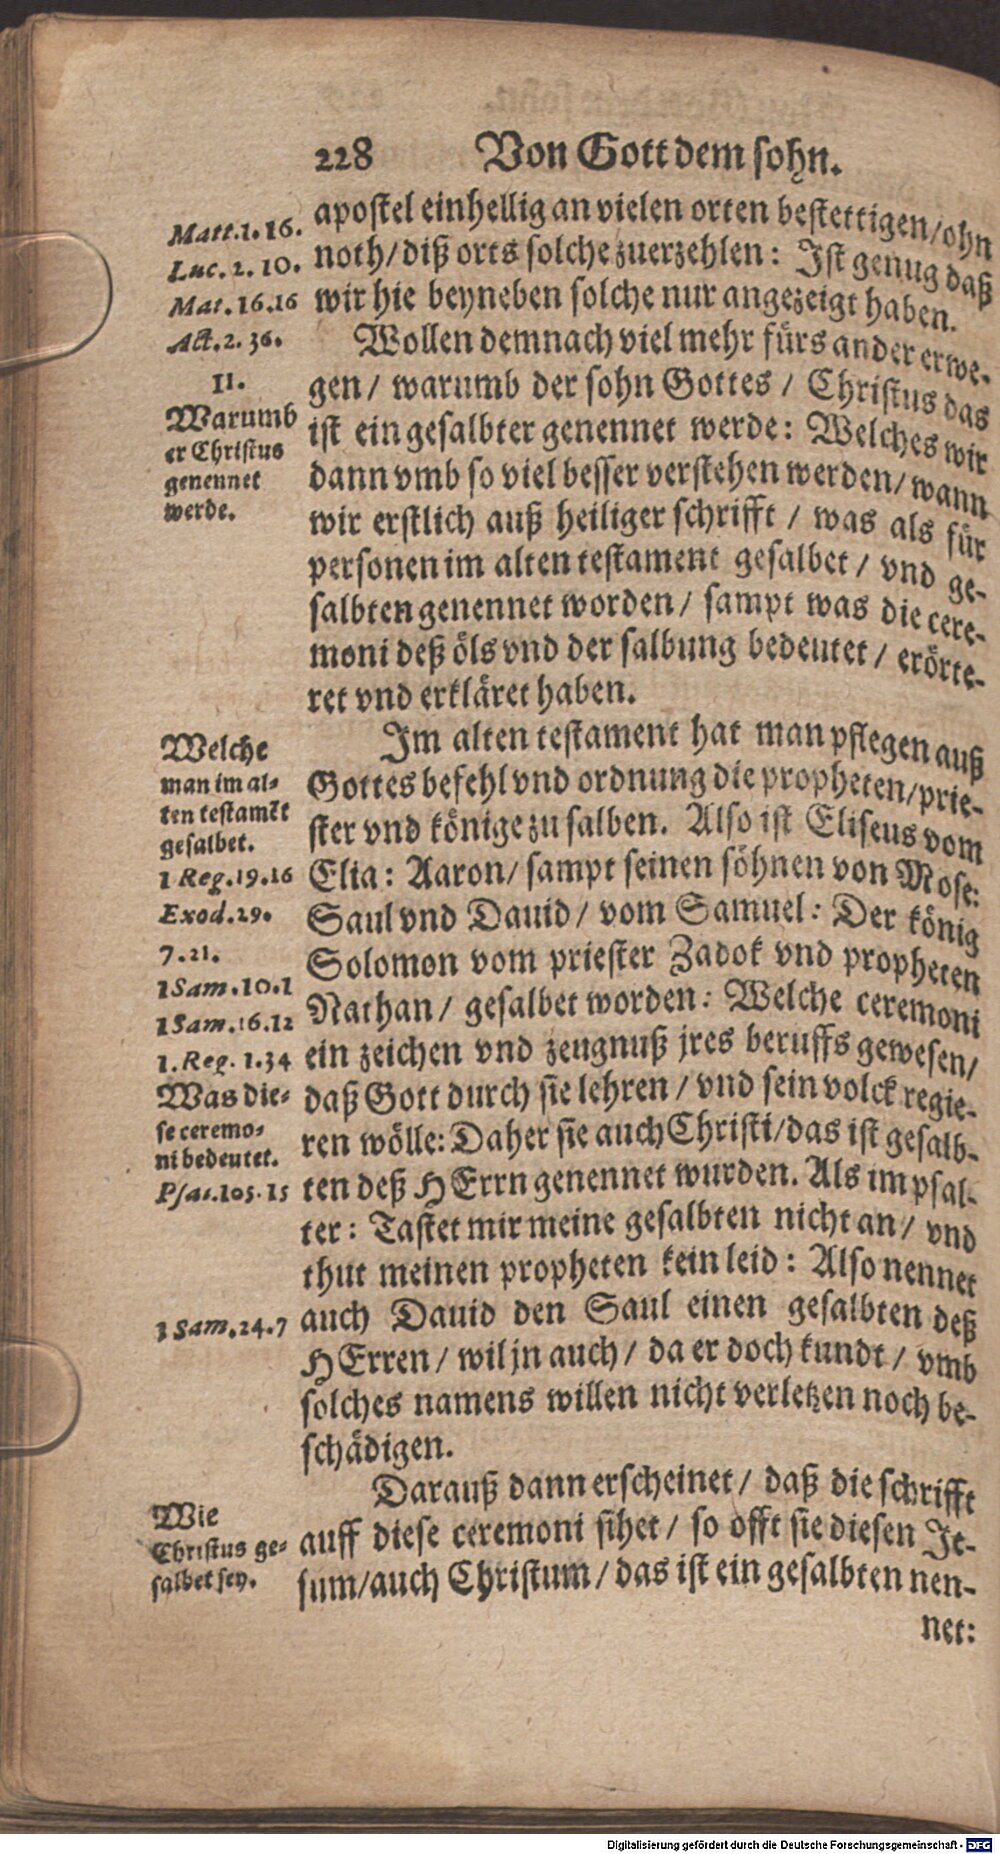 228 Von Gott dem sohn.
Matt.1.16.
Luc.2.10.
Mat.16.16
Act.2.36.
apostel einhellig an vielen orten bestettigen/ohn
noth/diß orts solche zuerzehlen: Ist genug daß
wir hie beyneben solche nur angezeigt haben.
II.
Warumb
er Christus
genennet
werde.
Wollen demnach viel mehr fürs ander erwe-
gen/ warumb der sohn Gottes / Christus das
ist ein gesalbter genennet werde: Welches wir
dann vmb so viel besser verstehen werden/wann
wir erstlich auß heiliger schrifft / was als für
personen im alten testament gesalbet / vnd ge-
salbten genennet worden/ sampt was die cere-
moni deß öls vnd der salbung bedeutet / erörte-
ret vnd erkläret haben.
Welche
man im al-
ten testamēt
gesalbet.
1 Reg.19.16
Exod.29.
7.21.
1 Sam.10.1
1 Sam.16.12
1.Reg. 1.34
Was die-
se ceremo-
ni bedeutet.
Psal.105.15
Im alten testament hat man pflegen auß
Gottes befehl vnd ordnung die propheten/prie-
ster vnd könige zu salben. Also ist Eliseus vom
Elia: Aaron/ sampt seinen söhnen von Mose:
Saul vnd Dauid / vom Samuel: Der könig
Solomon vom priester Zadok vnd propheten
Nathan/ gesalbet worden: Welche ceremoni
ein zeichen vnd zeugnuß jres beruffs gewesen/
daß Gott durch sie lehren / vnd sein volck regie-
ren wölle: Daher sie auch Christi/das ist gesalb-
ten deß HErrn genennet wurden. Als im psal-
ter: Tastet mir meine gesalbten nicht an/ vnd
thut meinen propheten kein leid: Also nennet
1 Sam.24.7
auch Dauid den Saul einen gesalbten deß
HErren/ wil jn auch/ da er doch kundt / vmb
solches namens willen nicht verletzen noch be-
schädigen.
Wie
Christus ge-
salbet sey.
Darauß dann erscheinet/ daß die schrifft
auff diese ceremoni sihet/ so offt sie diesen Je-
sum/auch Christum/das ist ein gesalbten nen-
net:
Digitalisierung gefördert durch die Deutsche Forschungsgemeinschaft - DFG